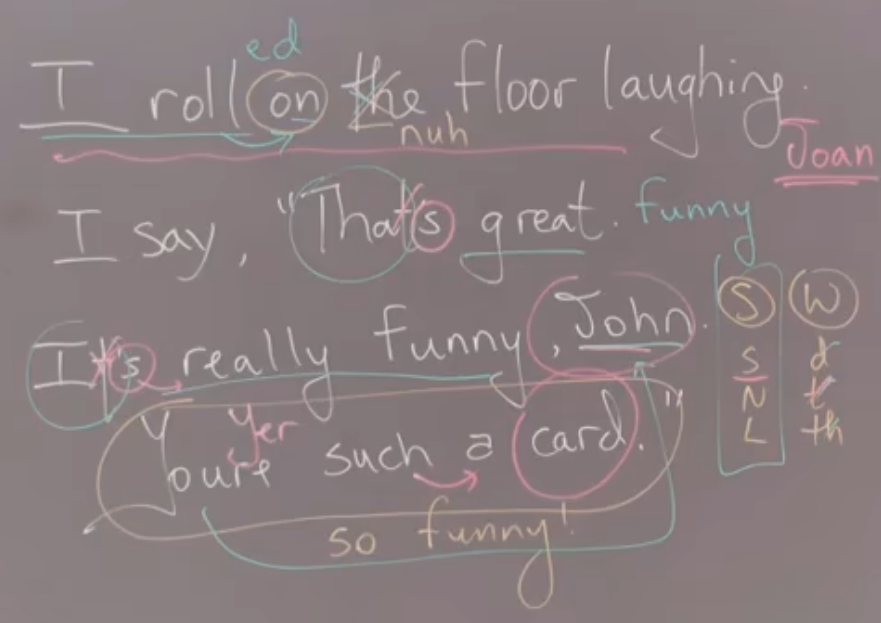 ed
I roll on the floor laughing.
nuh
Joan
I say, "That's great. funny
It's really funny, John.
S W
s d
N t
L th
yer
You're such a card."
so funny!